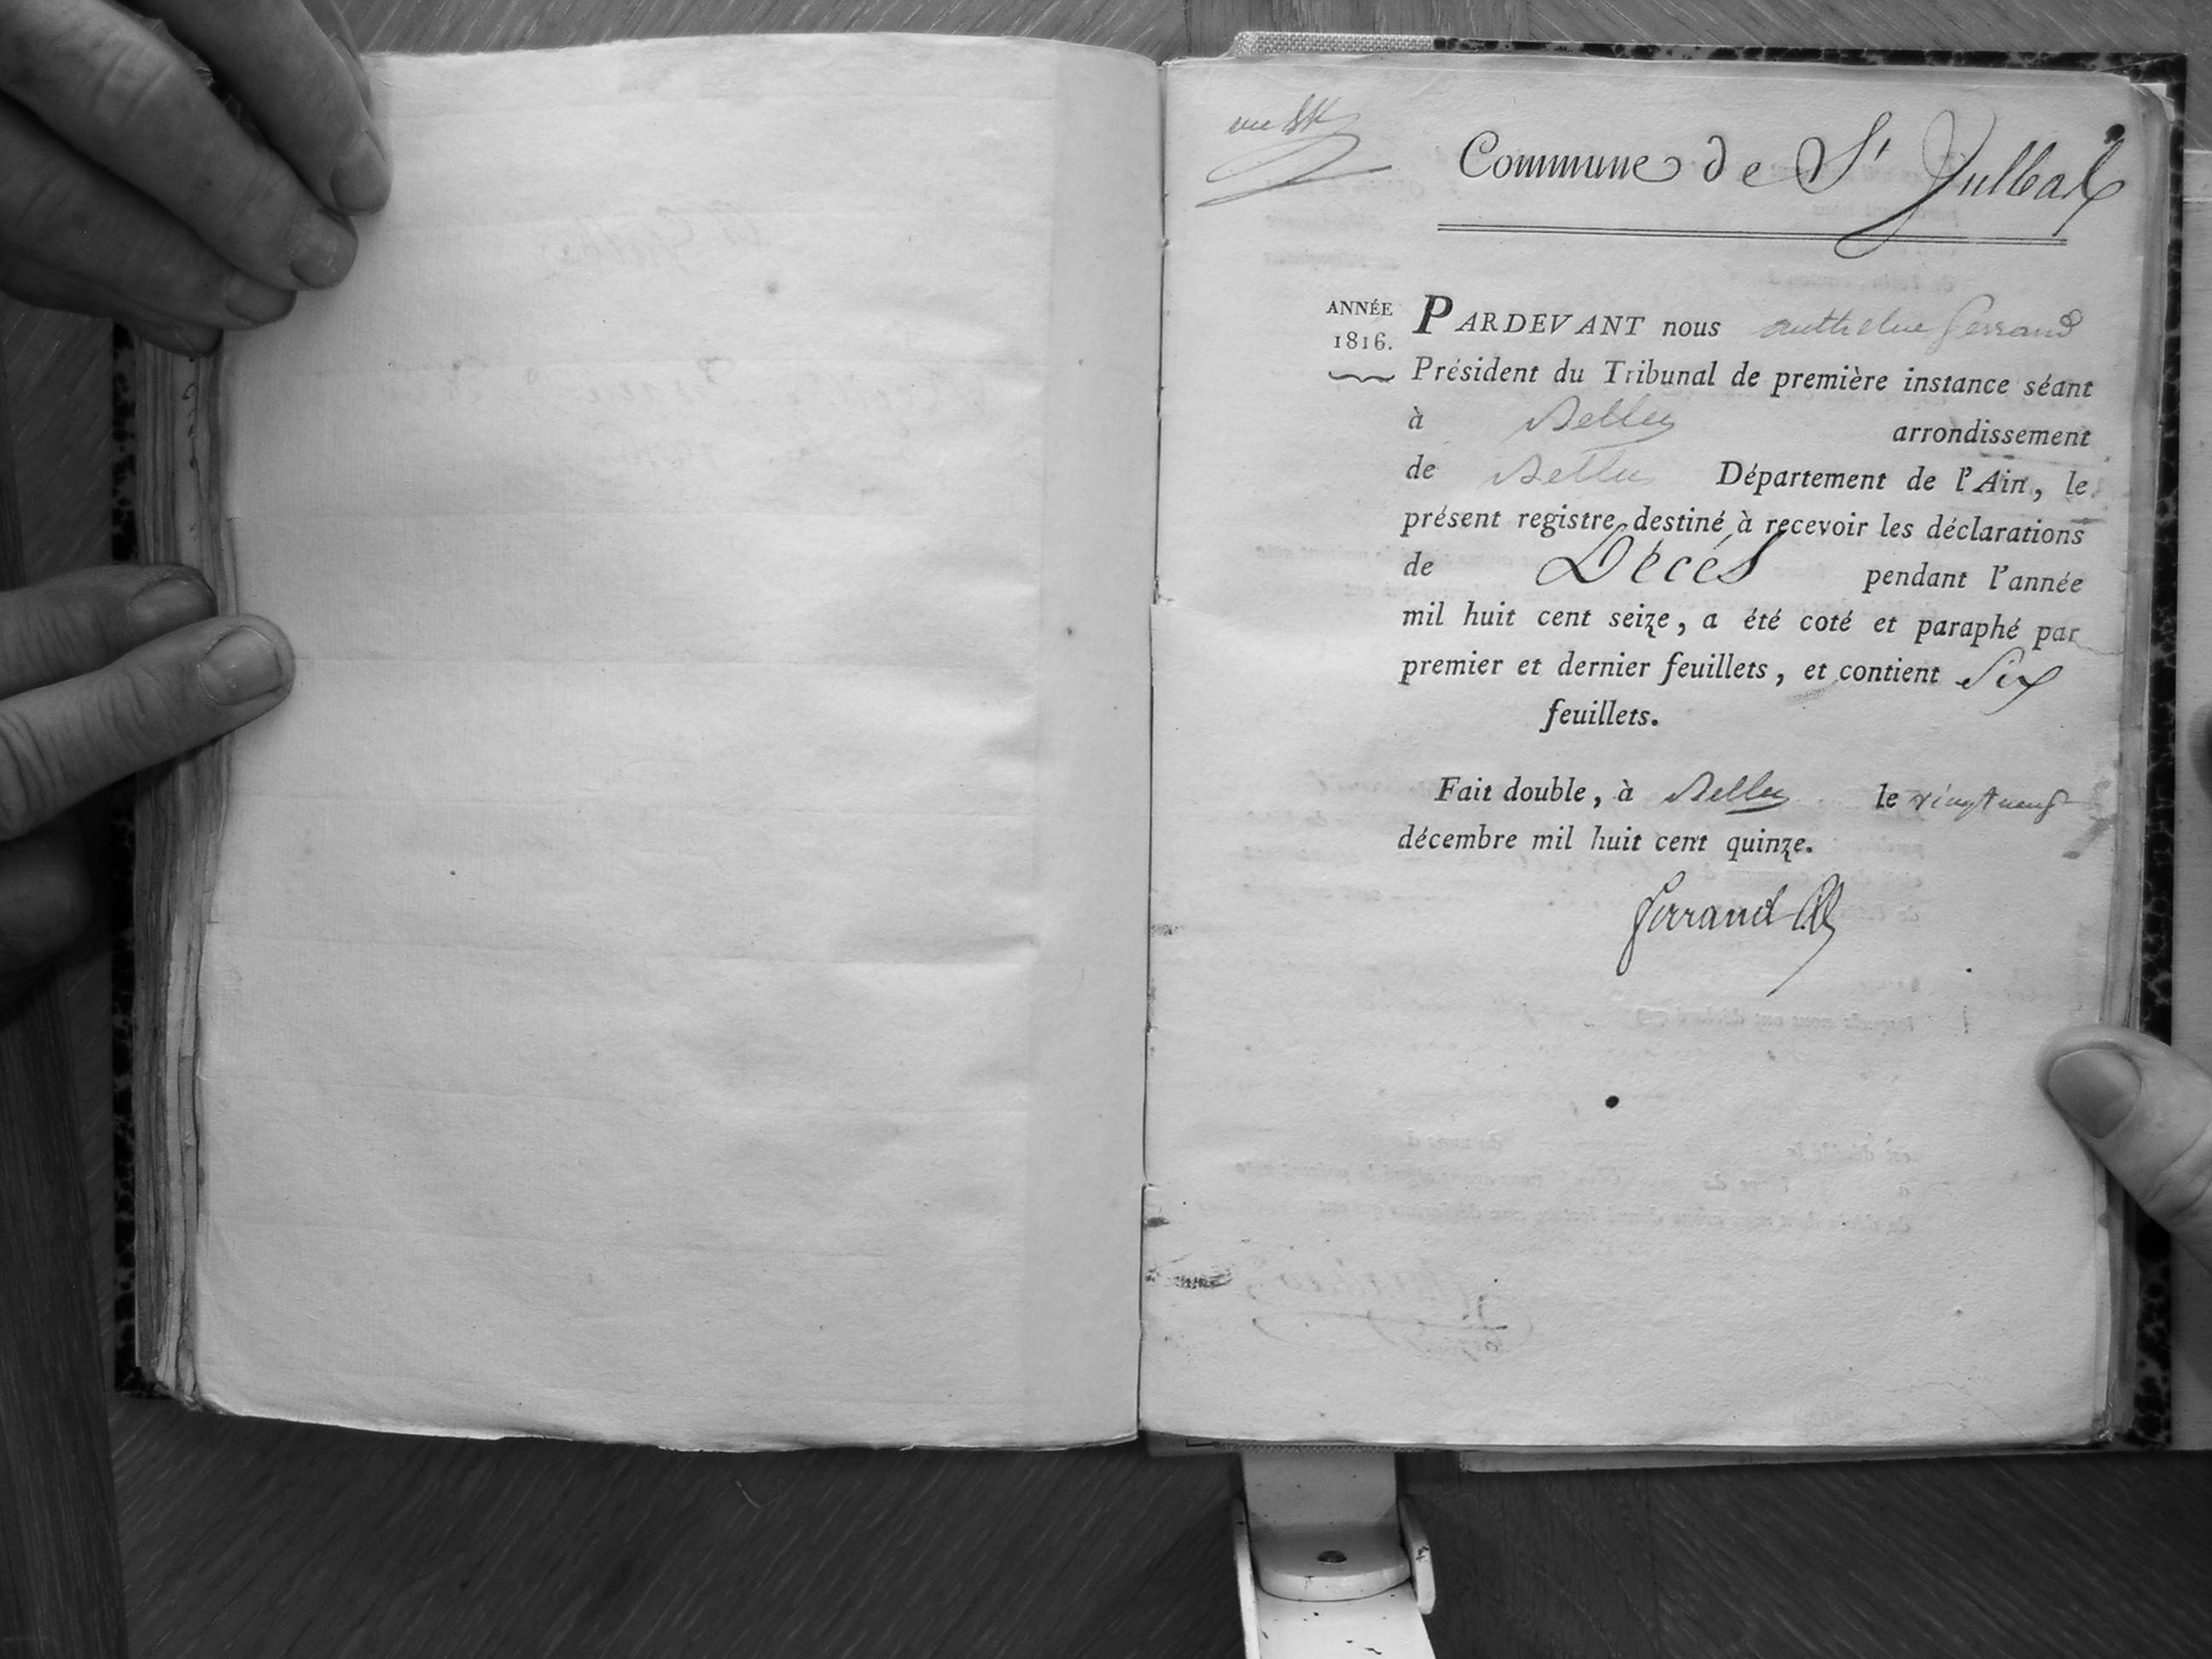 Commune de St Julbal
ANNÉE
1816.
PARDEVANT nous anthelme Ferrand
Président du Tribunal de première instance séant
à Belley arrondissement
de Belley Département de l'Ain, le
présent registre destiné à recevoir les déclarations
de Décés pendant l'année
mil huit cent seize, a été coté et paraphé par
premier et dernier feuillets, et contient Six
feuillets.
Fait double, à Belley le vingt neuf
décembre mil huit cent quinze.
Ferrand